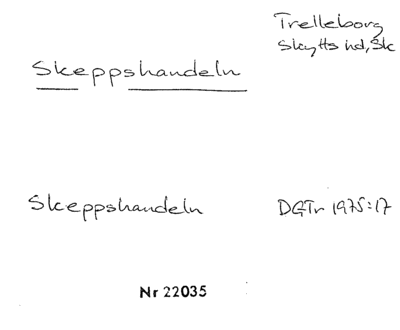 Trelleborg
Skytts hd, Sk
Skeppshandeln
Skeppshandeln
DGTr 1975:17
Nr 22035